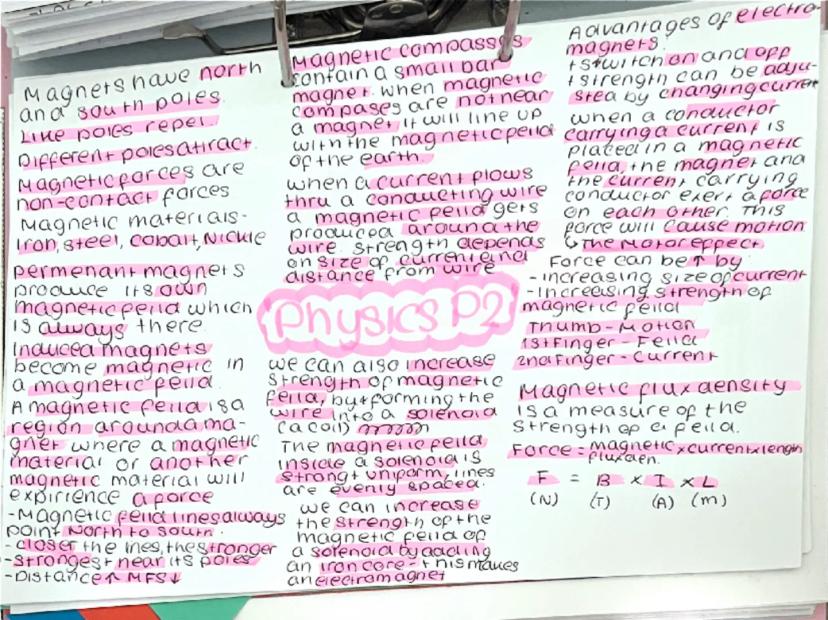 Magnets have north
and south poles.
Like poles repel.
Different poles attract.
Magnetic forces are
non-contact forces
Magnetic materials-
Iron, steel, cobalt, Nickle
permenant magnets
produce its own
magnetic feild which
is always there
Induced magnets
become magnetic in
a magnetic feild.
A magnetic feild is a
region around a ma-
gnet where a magnetic
material or another
magnetic material will
expirience a force
-Magnetic feild lines always
point North to south.
-closer the lines, the stronger
-strongest near its poles
-Distance↑ MFS↓
Magnetic compasses
contain a small bar
magnet. when magnetic
compases are not near
a magnet it will line up
with the magnetic feild
of the earth.
when a current flows
thru a conducting wire
a magnetic feild gets
produced around the
wire. strength depends
on size of current and
distance from wire
Physics P2
we can also increase
strength of magnetic
feild, by forming the
wire into a solenoid
(a coil)
The magnetic feild
inside a solenoid is
strong + uniform, lines
are evenly spaced.
we can increase
the strength of the
magnetic feild of
a solenoid by adding
an iron core - this makes
an electromagnet
Advantages of electro-
magnets:
+ switch on and off
+ strength can be adju-
sted by changing current
when a conductor
carrying a current is
placed in a magnetic
feild, the magnet and
the current carrying
conductor exert a force
on each other. This
force will cause motion
↳ The Motor effect
Force can be ↑ by
-increasing size of current
-Increasing strength of
magnetic feild
Thumb - Motion
1st Finger - Feild
2nd Finger - Current
Magnetic flux density
is a measure of the
strength of a feild.
Force = magnetic flux den. × current × length
F = B × I × L
(N) (T) (A) (m)